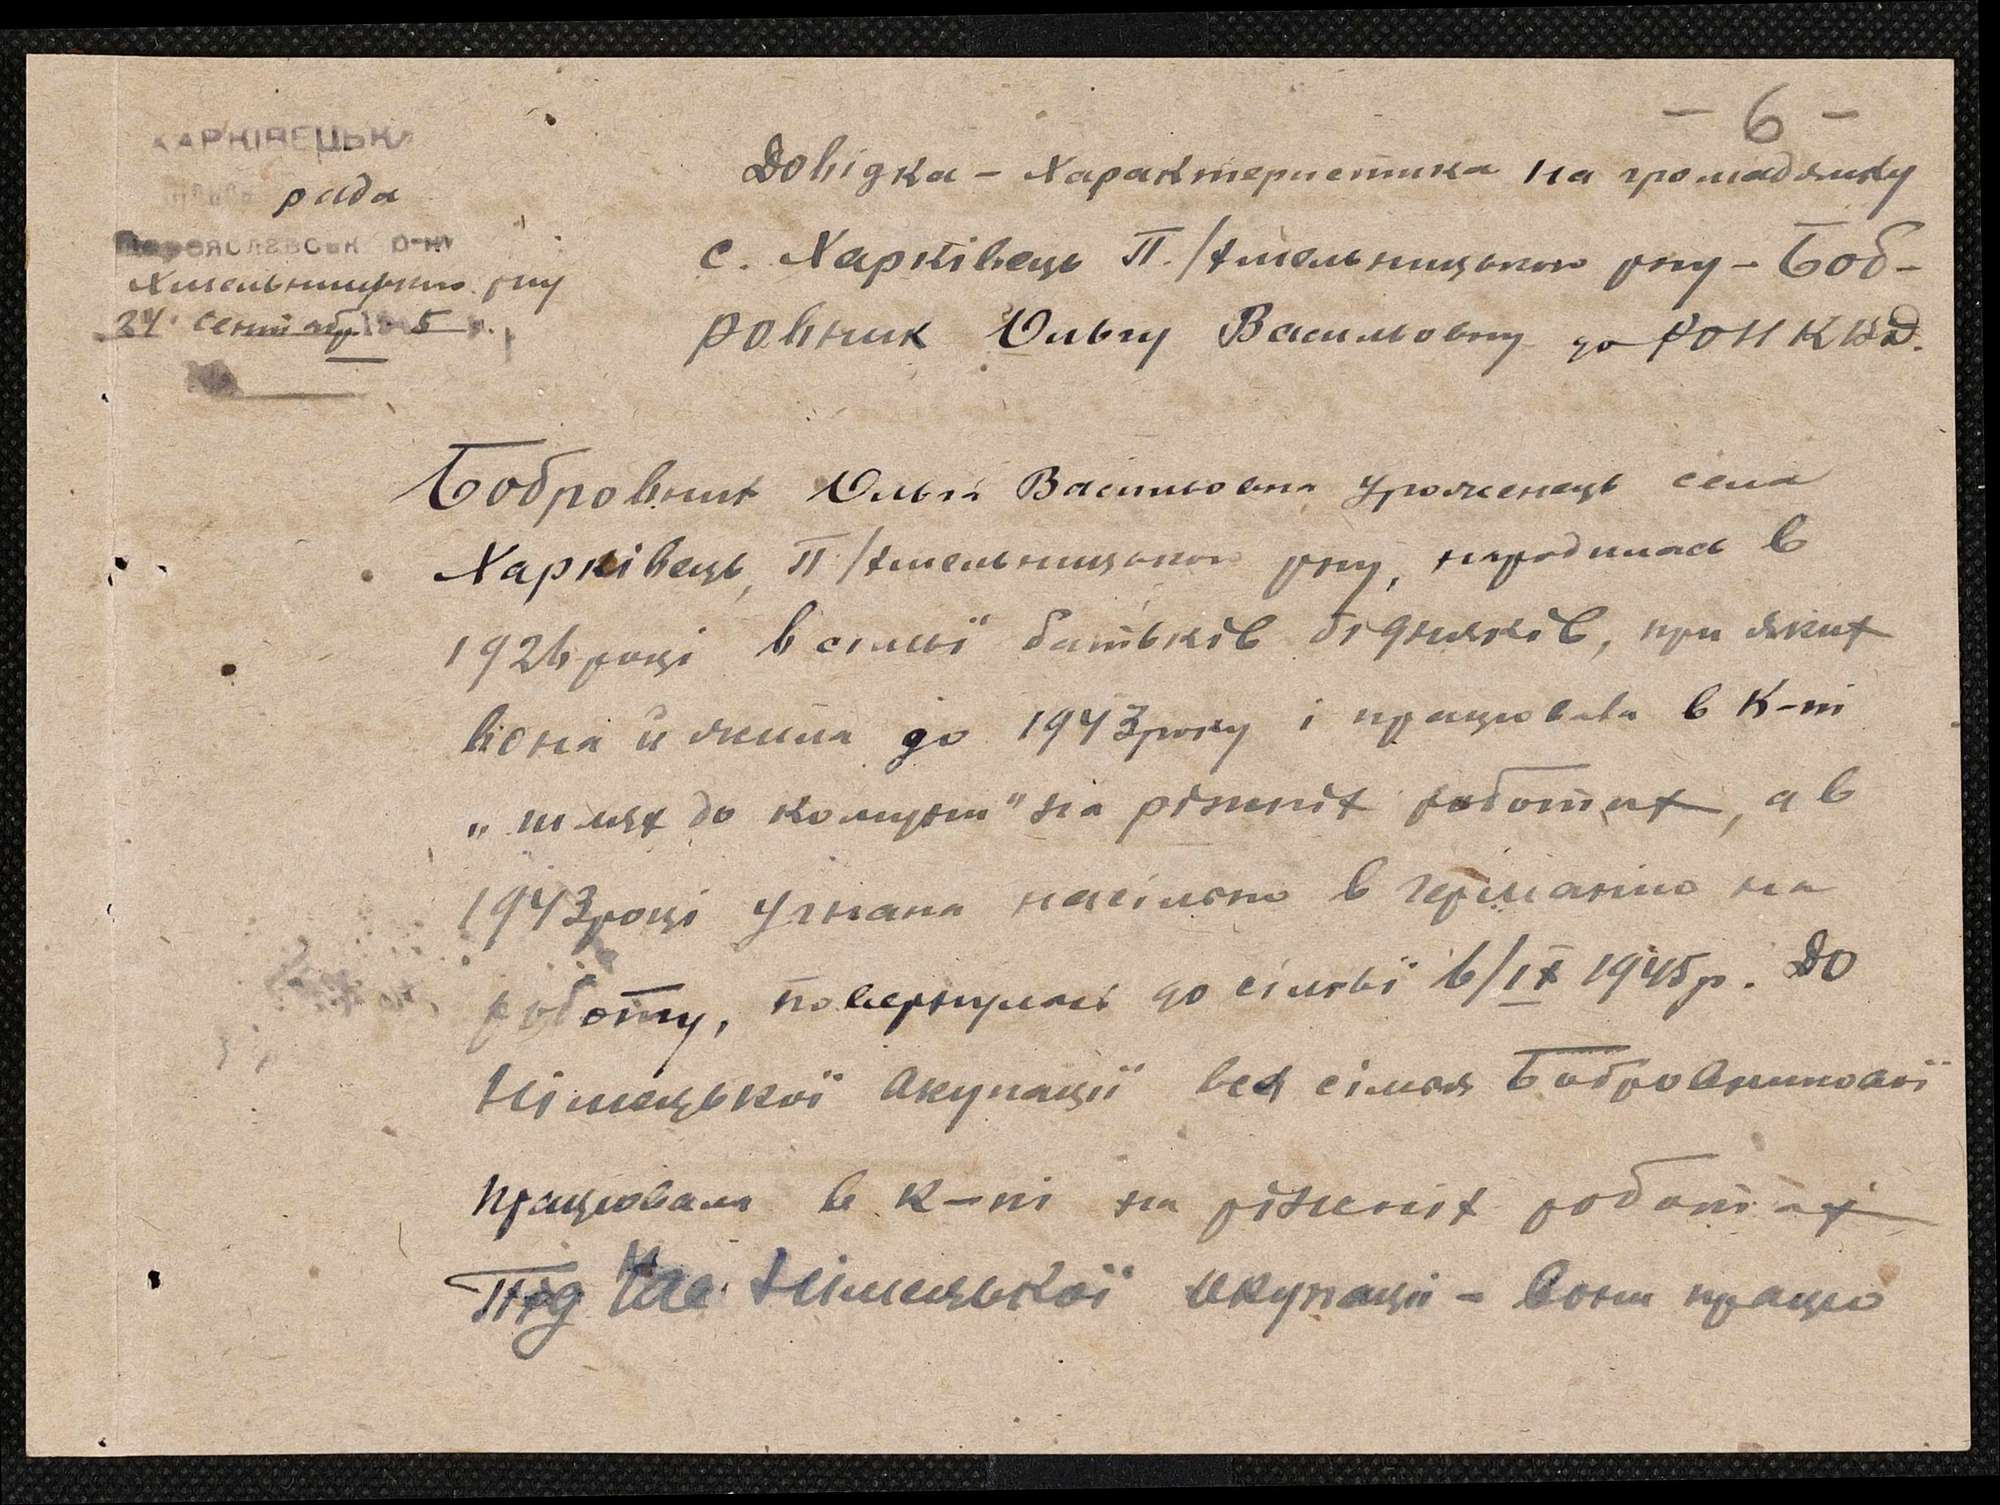 - 6 -
ХАРКІВЕЦЬКА
рада
Переяславськ р-ну
Хмельницького р-ну
24 сентября 1945 р.
Довідка - Характеристика на громадянку
с. Харківець П./Хмельницького р-ну - Боб-
ровник Ольгу Васильовну до РОНКВД.
Бобровник Ольга Васильовна уроженець села
Харківець, П/Хмельницького р-ну, народилась в
1926 році в сімьї батьків бідняків, при яких
вона й жила до 1943 року і працювала в к-пі
„шлях до комуни" на різних роботах, а в
1943 році угнана насільно в германію на
роботу, повернулась до сімьї 6/IX 1945 р. До
Німецької окупації вся сімья Бобровникової
працювала в к-пі на різних роботах
Під час Німецької окупації - вони працю